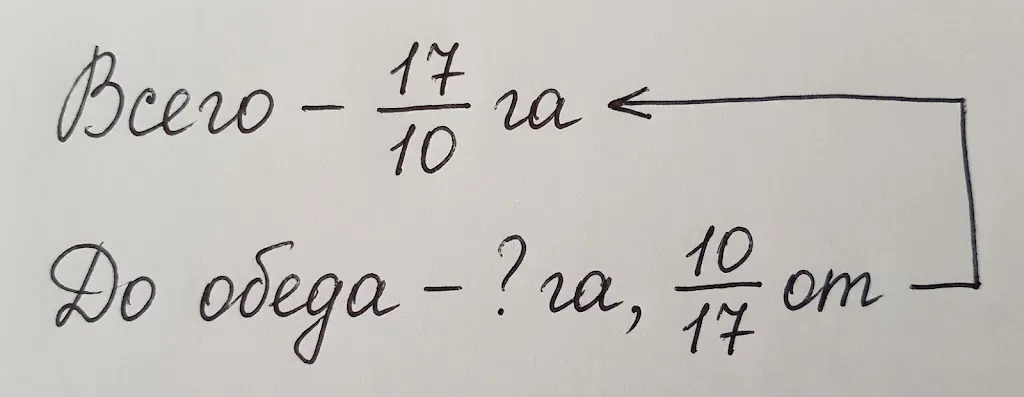 Всего – 17/10 га
До обеда – ? га, 10/17 от